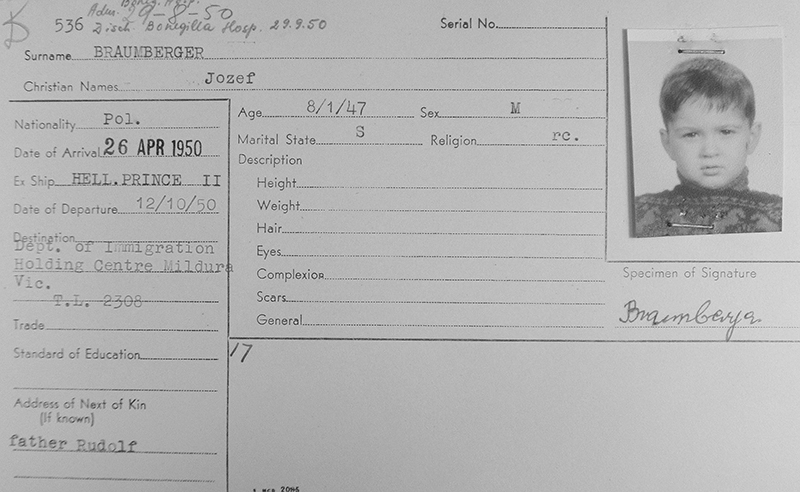 Boneg. Hosp.
Adm. 29-8-50
536 Disch. Bonegilla Hosp. 29.9.50
Serial No.
Surname BRAUMBERGER
Christian Names Jozef
Nationality Pol.
Date of Arrival 26 APR 1950
Ex Ship HELL.PRINCE II
Date of Departure 12/10/50
Destination
Dept. of Immigration
Holding Centre Mildura
Vic.
T.L. 2308
Trade
Standard of Education
Address of Next of Kin
(If known)
father Rudolf
Age 8/1/47 Sex M
Marital State S Religion rc.
Description
Height
Weight
Hair
Eyes
Complexion
Scars
General
17
Specimen of Signature
Braumberger